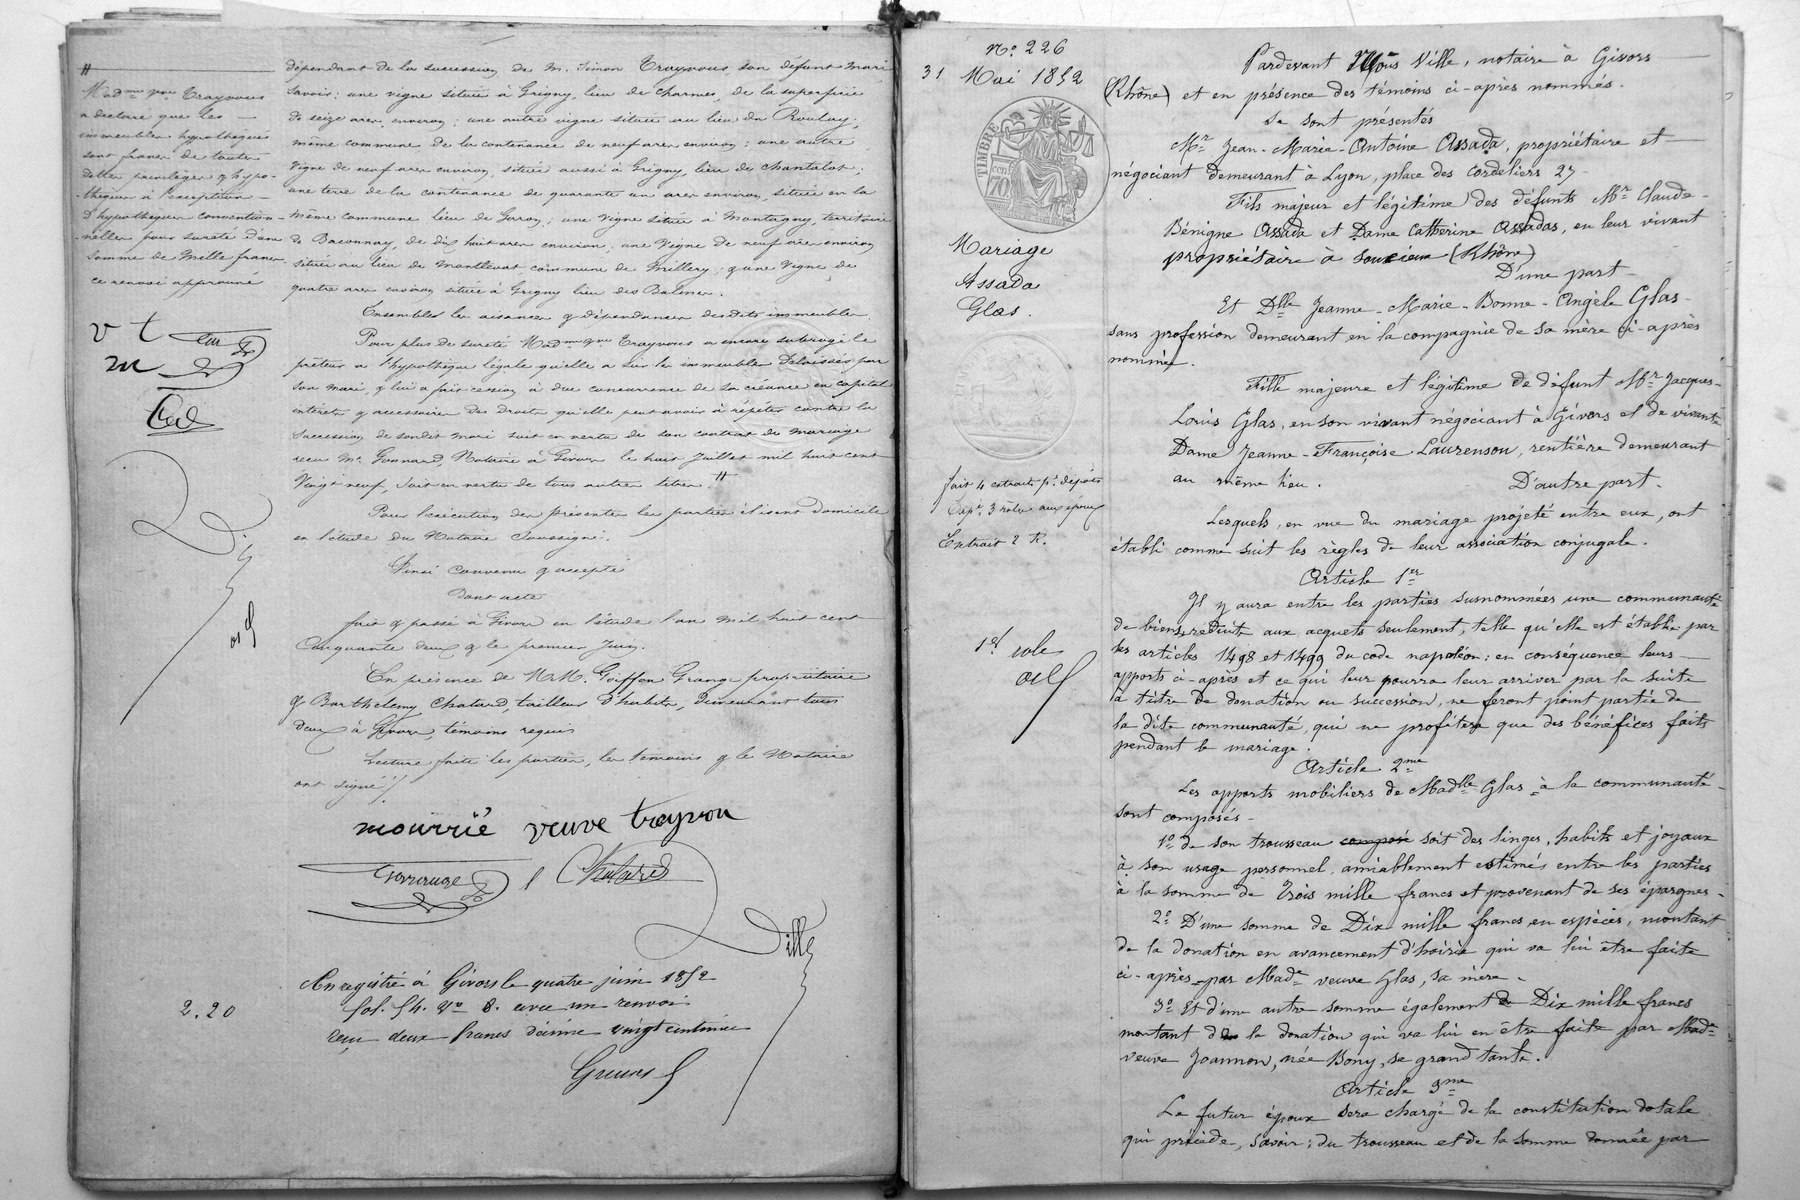 Mad.me v.ve Trayvoux
a déclaré que les
immeubles hypothéqués
sont francs de toutes
dettes privilèges & hypo-
-thèques à l'exception
d'hypothèques convention-
nelles pour sureté d'une
somme de Mille francs
ce renvoi approuvé
v t
m
dépendant de la succession de M. Simon Trayvoux, son défunt mari
savoir: une vigne située à Grigny, lieu de Charmes, de la superficie
de seize ares environ; une autre vigne située au lieu du
même commune de la contenance de neuf ares environ; une autre
vigne de neuf ares environ, située aussi à Grigny, lieu de Chantelot;
une terre de la contenance de quarante un ares environ, située en la
même commune lieu de ; une vigne située à Montagny, territoire
de Baconnay, de dix huit ares environ; une vigne de neuf ares environ
située au lieu de commune de Millery; & une vigne de
quatre ares environ située à Grigny lieu des Balmes.
Ensembles les aisances & dépendances desdits immeubles.
Pour plus de sureté Mad.me v.ve Trayvoux a encore subrogé le
prêteur à l'hypothèque légale qu'elle a sur les immeubles délaissés par
son mari, & lui a fait cession à due concurrence de sa créance en capital
intérêts & accessoires des droits qu'elle peut avoir à répéter contre la
succession de sondit mari soit en vertu de son contrat de mariage
reçu Me Gonnard, Notaire à Givors le huit Juillet mil huit cent
Vingt neuf, soit en vertu de tous autres titres. //
Pour l'exécution des présentes les parties élisent domicile
en l'étude du Notaire soussigné.
Ainsi convenu & accepté
Dont acte
fait & passé à Givors en l'étude l'an mil huit cent
Cinquante deux & le premier Juin.
En présence de M.M. Goiffon Grange propriétaire
& Barthélemy Chatard, tailleur d'habits, demeurant tous
deux à Givors, témoins requis
Lecture faite les parties, les témoins & le Notaire
ont signé./.
mourrié veuve trayvou
Chatard
Ville
Enregistré à Givors le quatre juin 1852
fol. 54. Vo 8. avec un renvoi
reçu deux francs décime vingt centimes
2.20
No 226
31 Mai 1852
TIMBRE
70 cen
Mariage
Assada
Glas.
fait 4 extraits pr dépôts
Expn 3 rôles aux époux
Extrait 2 R.
1er role
Pardevant Me Louis Ville, notaire à Givors
(Rhône) et en présence des témoins ci-après nommés.
Se sont présentés
Mr Jean-Marie-Antoine Assada, propriétaire et
négociant demeurant à Lyon, place des Cordeliers 27
Fils majeur et légitime des défunts Mr Claude-
Bénigne Assada et Dame Catherine Assadas, en leur vivant
propriétaire à Soucieu (Rhône)
D'une part
Et Dlle Jeanne-Marie-Bonne-Angèle Glas
sans profession demeurant en la compagnie de sa mère ci-après
nommée.
Fille majeure et légitime de défunt Mr Jacques-
Louis Glas, en son vivant négociant à Givors et de vivante
Dame Jeanne-Françoise Laurenson, rentière demeurant
au même lieu.
D'autre part.
Lesquels, en vue du mariage projeté entre eux, ont
établi comme suit les règles de leur association conjugale.
Article 1er
Il y aura entre les parties susnommées une communauté
de biens réduite aux acquets seulement, telle qu'elle est établie par
les articles 1498 et 1499 du code napoléon: en conséquence leurs
apports ci-après et ce qui leur pourra leur arriver par la suite
à titre de donation ou succession, ne feront point partie de
la dite communauté, qui ne profitera que des bénéfices faits
pendant le mariage.
Article 2me
Les apports mobiliers de Madlle Glas à la communauté
sont composés
1o de son trousseau composé soit des linges, habits et joyaux
à son usage personnel, amiablement estimés entre les parties
à la somme de Trois mille francs et provenant de ses épargnes.
2o D'une somme de Dix mille francs en espèces, montant
de la donation en avancement d'hoirie qui va lui être faite
ci-après par Made veuve Glas, sa mère.
3o Et d'une autre somme également de Dix mille francs
montant de la donation qui va lui en être faite par Made
veuve Joannon, née Bony, sa grand tante.
Article 3me
Le futur époux sera chargé de la constitution dotale
qui précède, savoir: du trousseau et de la somme donnée par